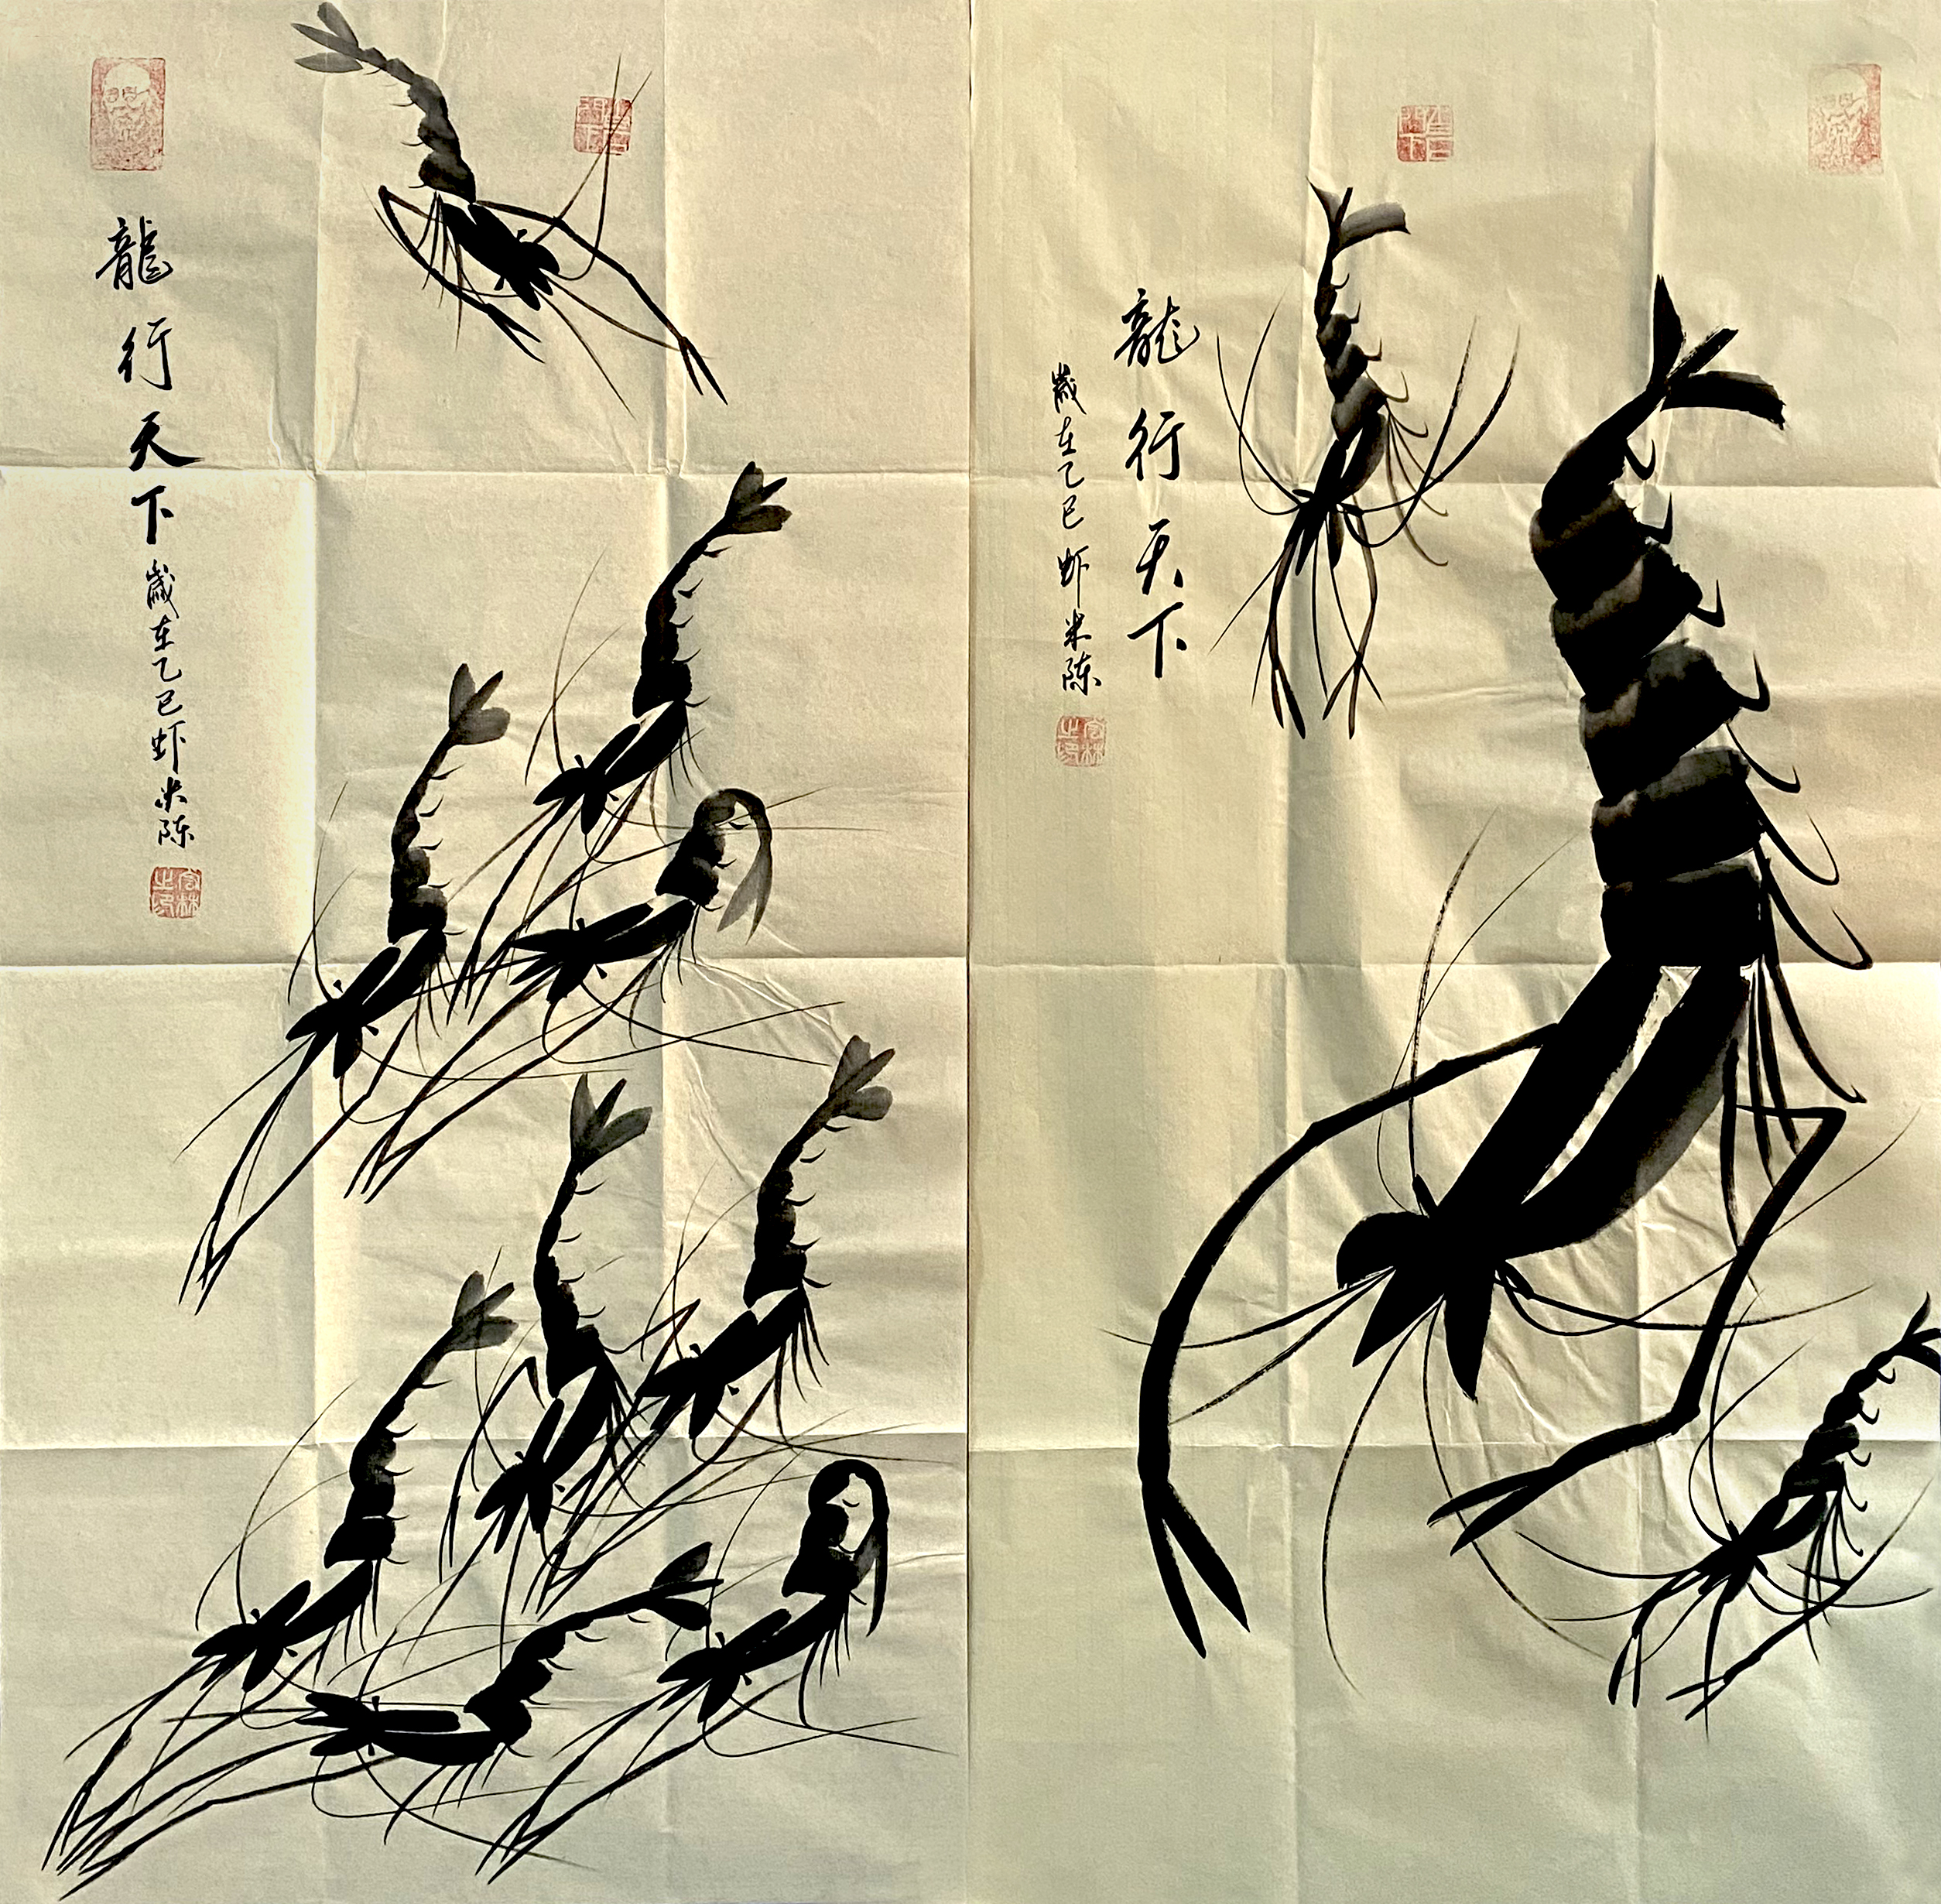 龍行天下
歲在乙巳虾米陈
龍行天下
歲在乙巳虾米陈